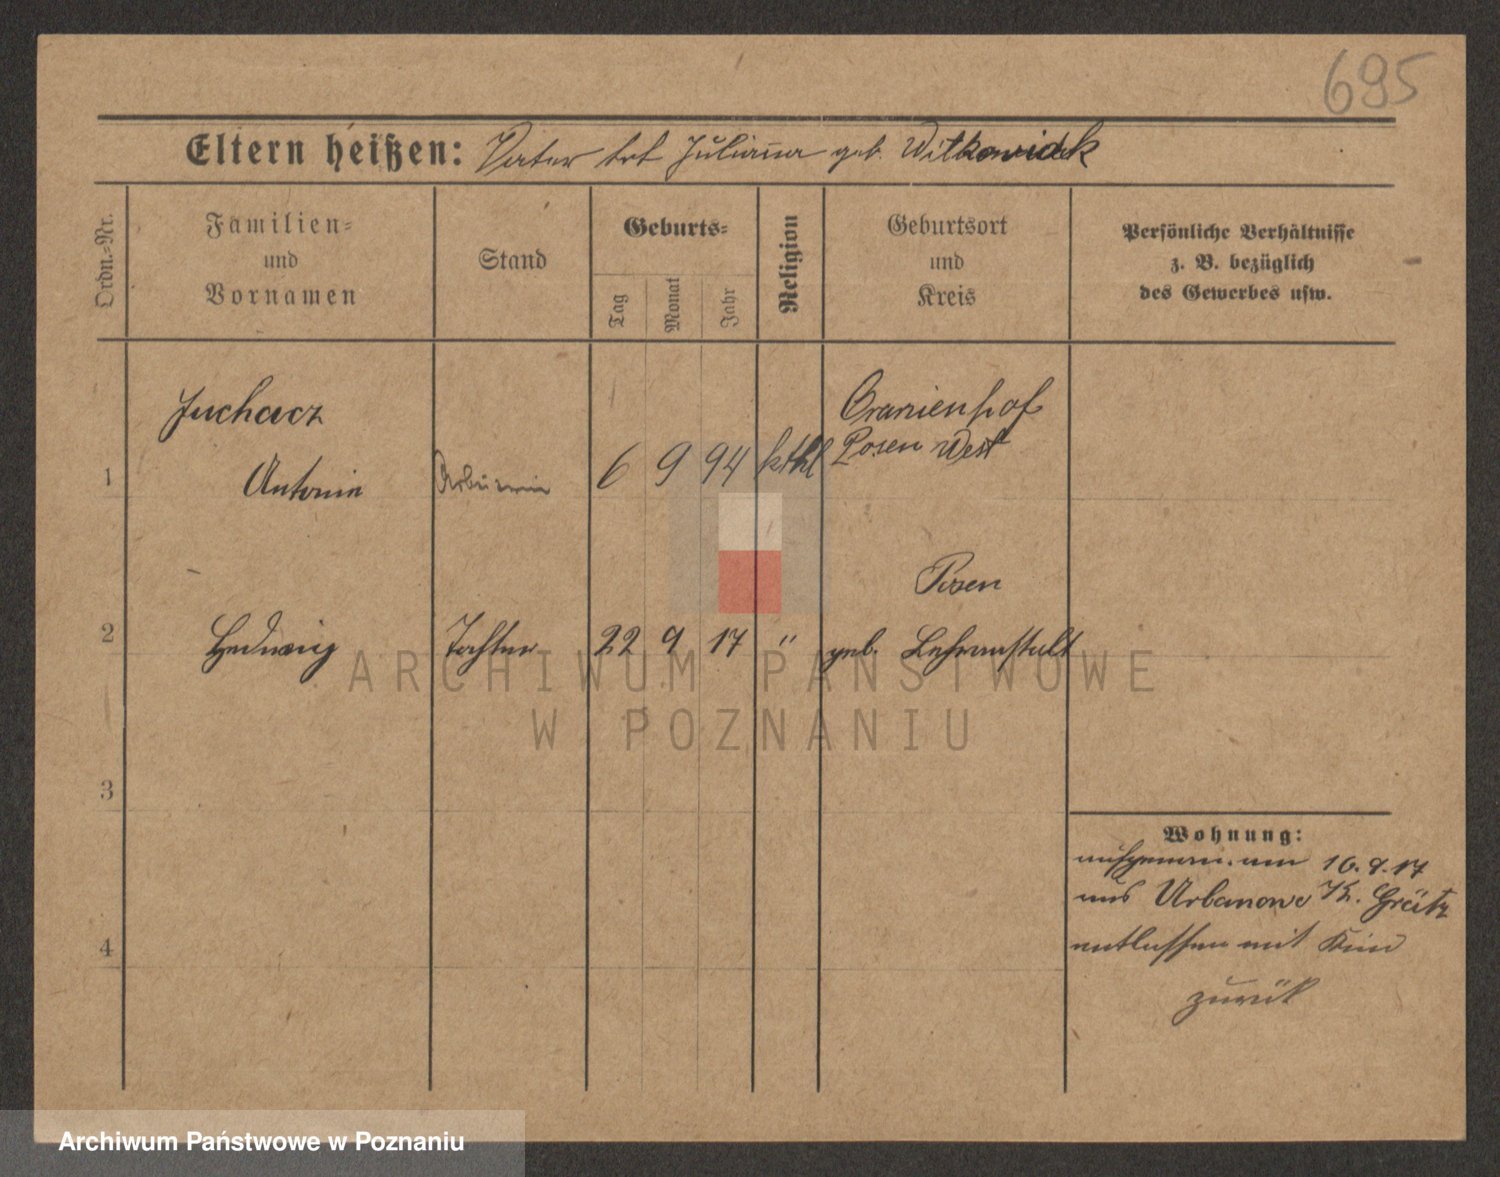 695
Eltern heißen: Vater tot Julianna geb. Witkowiak
Ordn.-Nr.
Familien-
und
Vornamen
Stand
Geburts-
Tag
Monat
Jahr
Religion
Geburtsort
und
Kreis
Persönliche Verhältnisse
z. B. bezüglich
des Gewerbes usw.
Juchacz
Oranienhof
Posen West
1 Antonin 6 9 94 kthl
Posen
2 Hedwig Tochter 22 9 17 " geb. Lehranstalt
ARCHIWUM PAŃSTWOWE
W POZNANIU
3
Wohnung:
aufgenom. am 16.9.17
aus Urbanowo Kr. Grätz
4
entlassen mit Kind
zurük
Archiwum Państwowe w Poznaniu